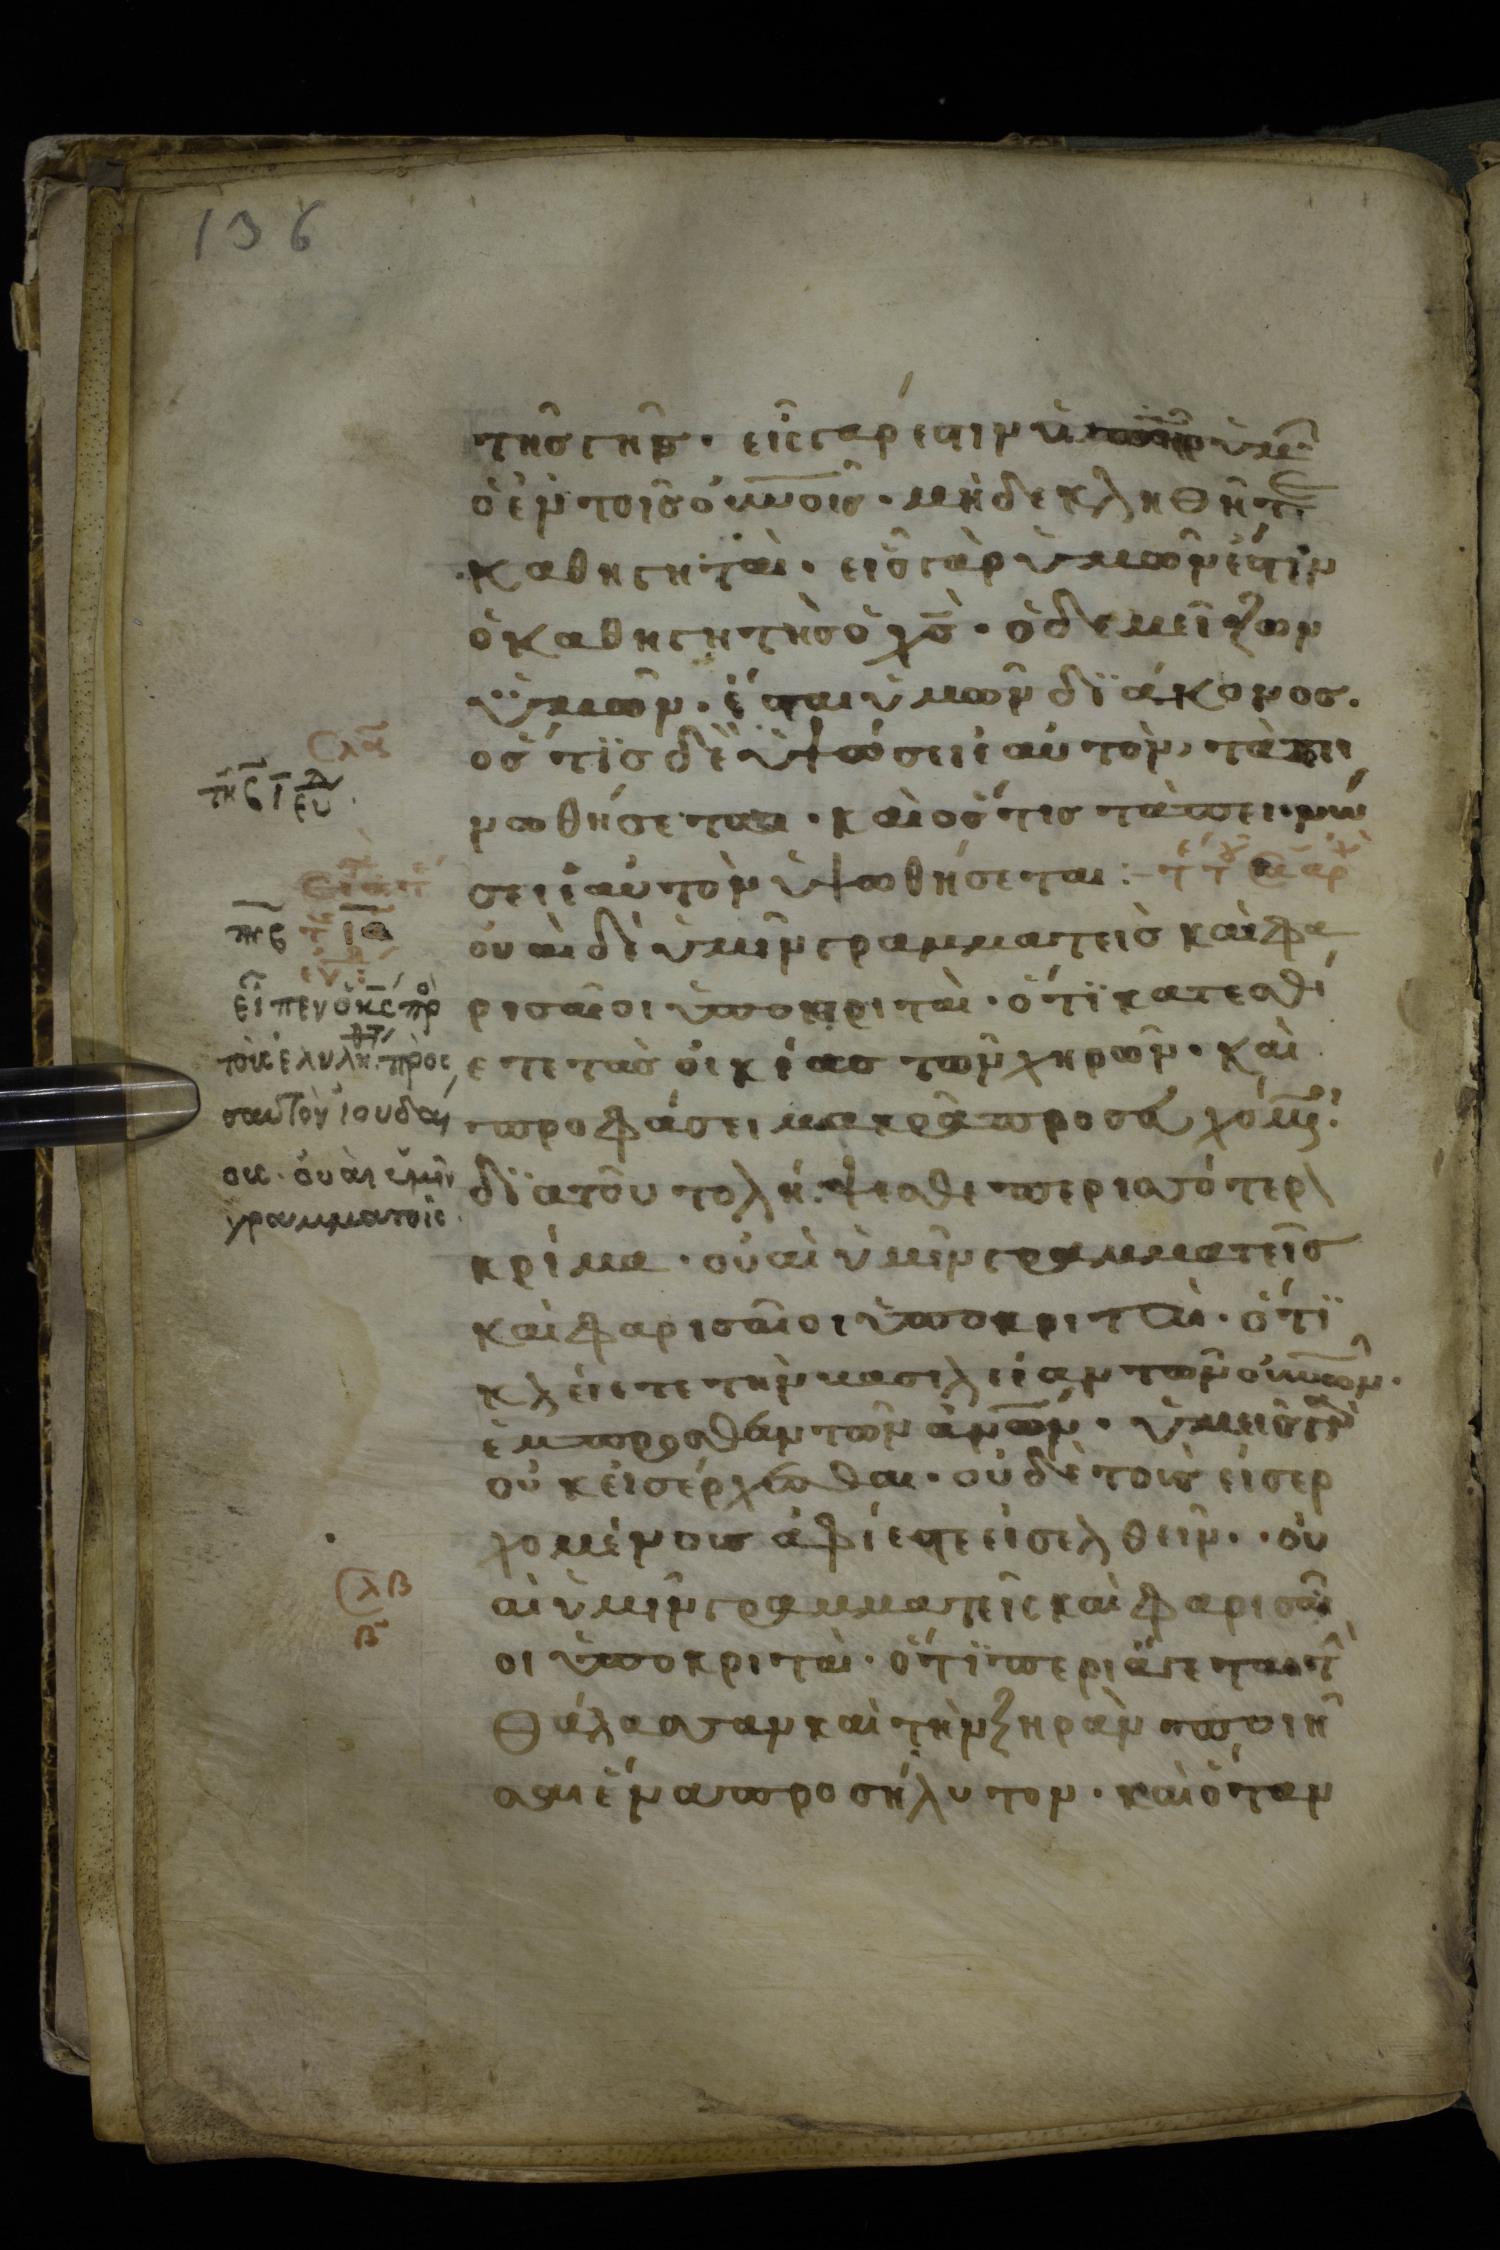 136
τῆς γῆς· εἷς γάρ ἐστιν ὁ π̅η̅ρ̅ ὑμῶ̅
ὁ ἐν τοῖς ο̅υ̅ν̅οις· μὴ δὲ κληθῆτε
καθηγηταὶ· εἷς γὰρ ὑμῶν ἐστιν
ὁ καθηγητὴς ὁ χ̅ς̅· ὁ δὲ μεῖζων
ὑμῶν· ἔσται ὑμῶν δϊάκονος.
ὅστϊς δὲ ὑψώσει ἑαυτὸν, ταπει
νωθήσεται· καὶ ὅστις ταπεινώ
σει ἑαυτὸν ὑψωθήσεται:
οὐαὶ δὲ ὑμῖν γραμματεὶς καὶ φα
ρισαῖοι ὑποκριταὶ· ὅτϊ κατεσθί
ετε τὰς οἰκίας τῶν χηρῶν· καὶ
προφάσει μακρᾶ προσευχόμενοι·
δϊα τοῦτο λήψεσθε περισσότερον
κρίμα· οὐαὶ ὑμῖν γραμματεῖς
καὶ φαρισαῖοι ὑποκριταὶ· ὅτϊ
κλείετε τὴν βασιλείαν τῶν ο̅υ̅ν̅ῶν·
ἔμπροσθεν τῶν α̅ν̅ῶν· ὑμεῖς γὰρ
οὐκ εἰσέρχεσθαι· οὐδὲ τοὺς εἰσερ
χομένους ἀφίετε εἰσελθεῖν· οὐ
αὶ ὑμῖν γραμματεῖς καὶ φαρισαῖ
οι ὑποκριταὶ· ὅτϊ περιάγεται τὴν
θάλασσαν καὶ τὴν ξηρὰν ποιῆ
σαι ἕνα προσήλυτον· καὶ ὅταν
σλα
τῆς
σλβ
β
εἶπεν ὁ κ̅ς̅ πρὸ
τοὺς ἐληλυ πρὸς
σαυτὸν ἰουδαί
ους· οὐαὶ ὑμῖν
γραμματοῖς